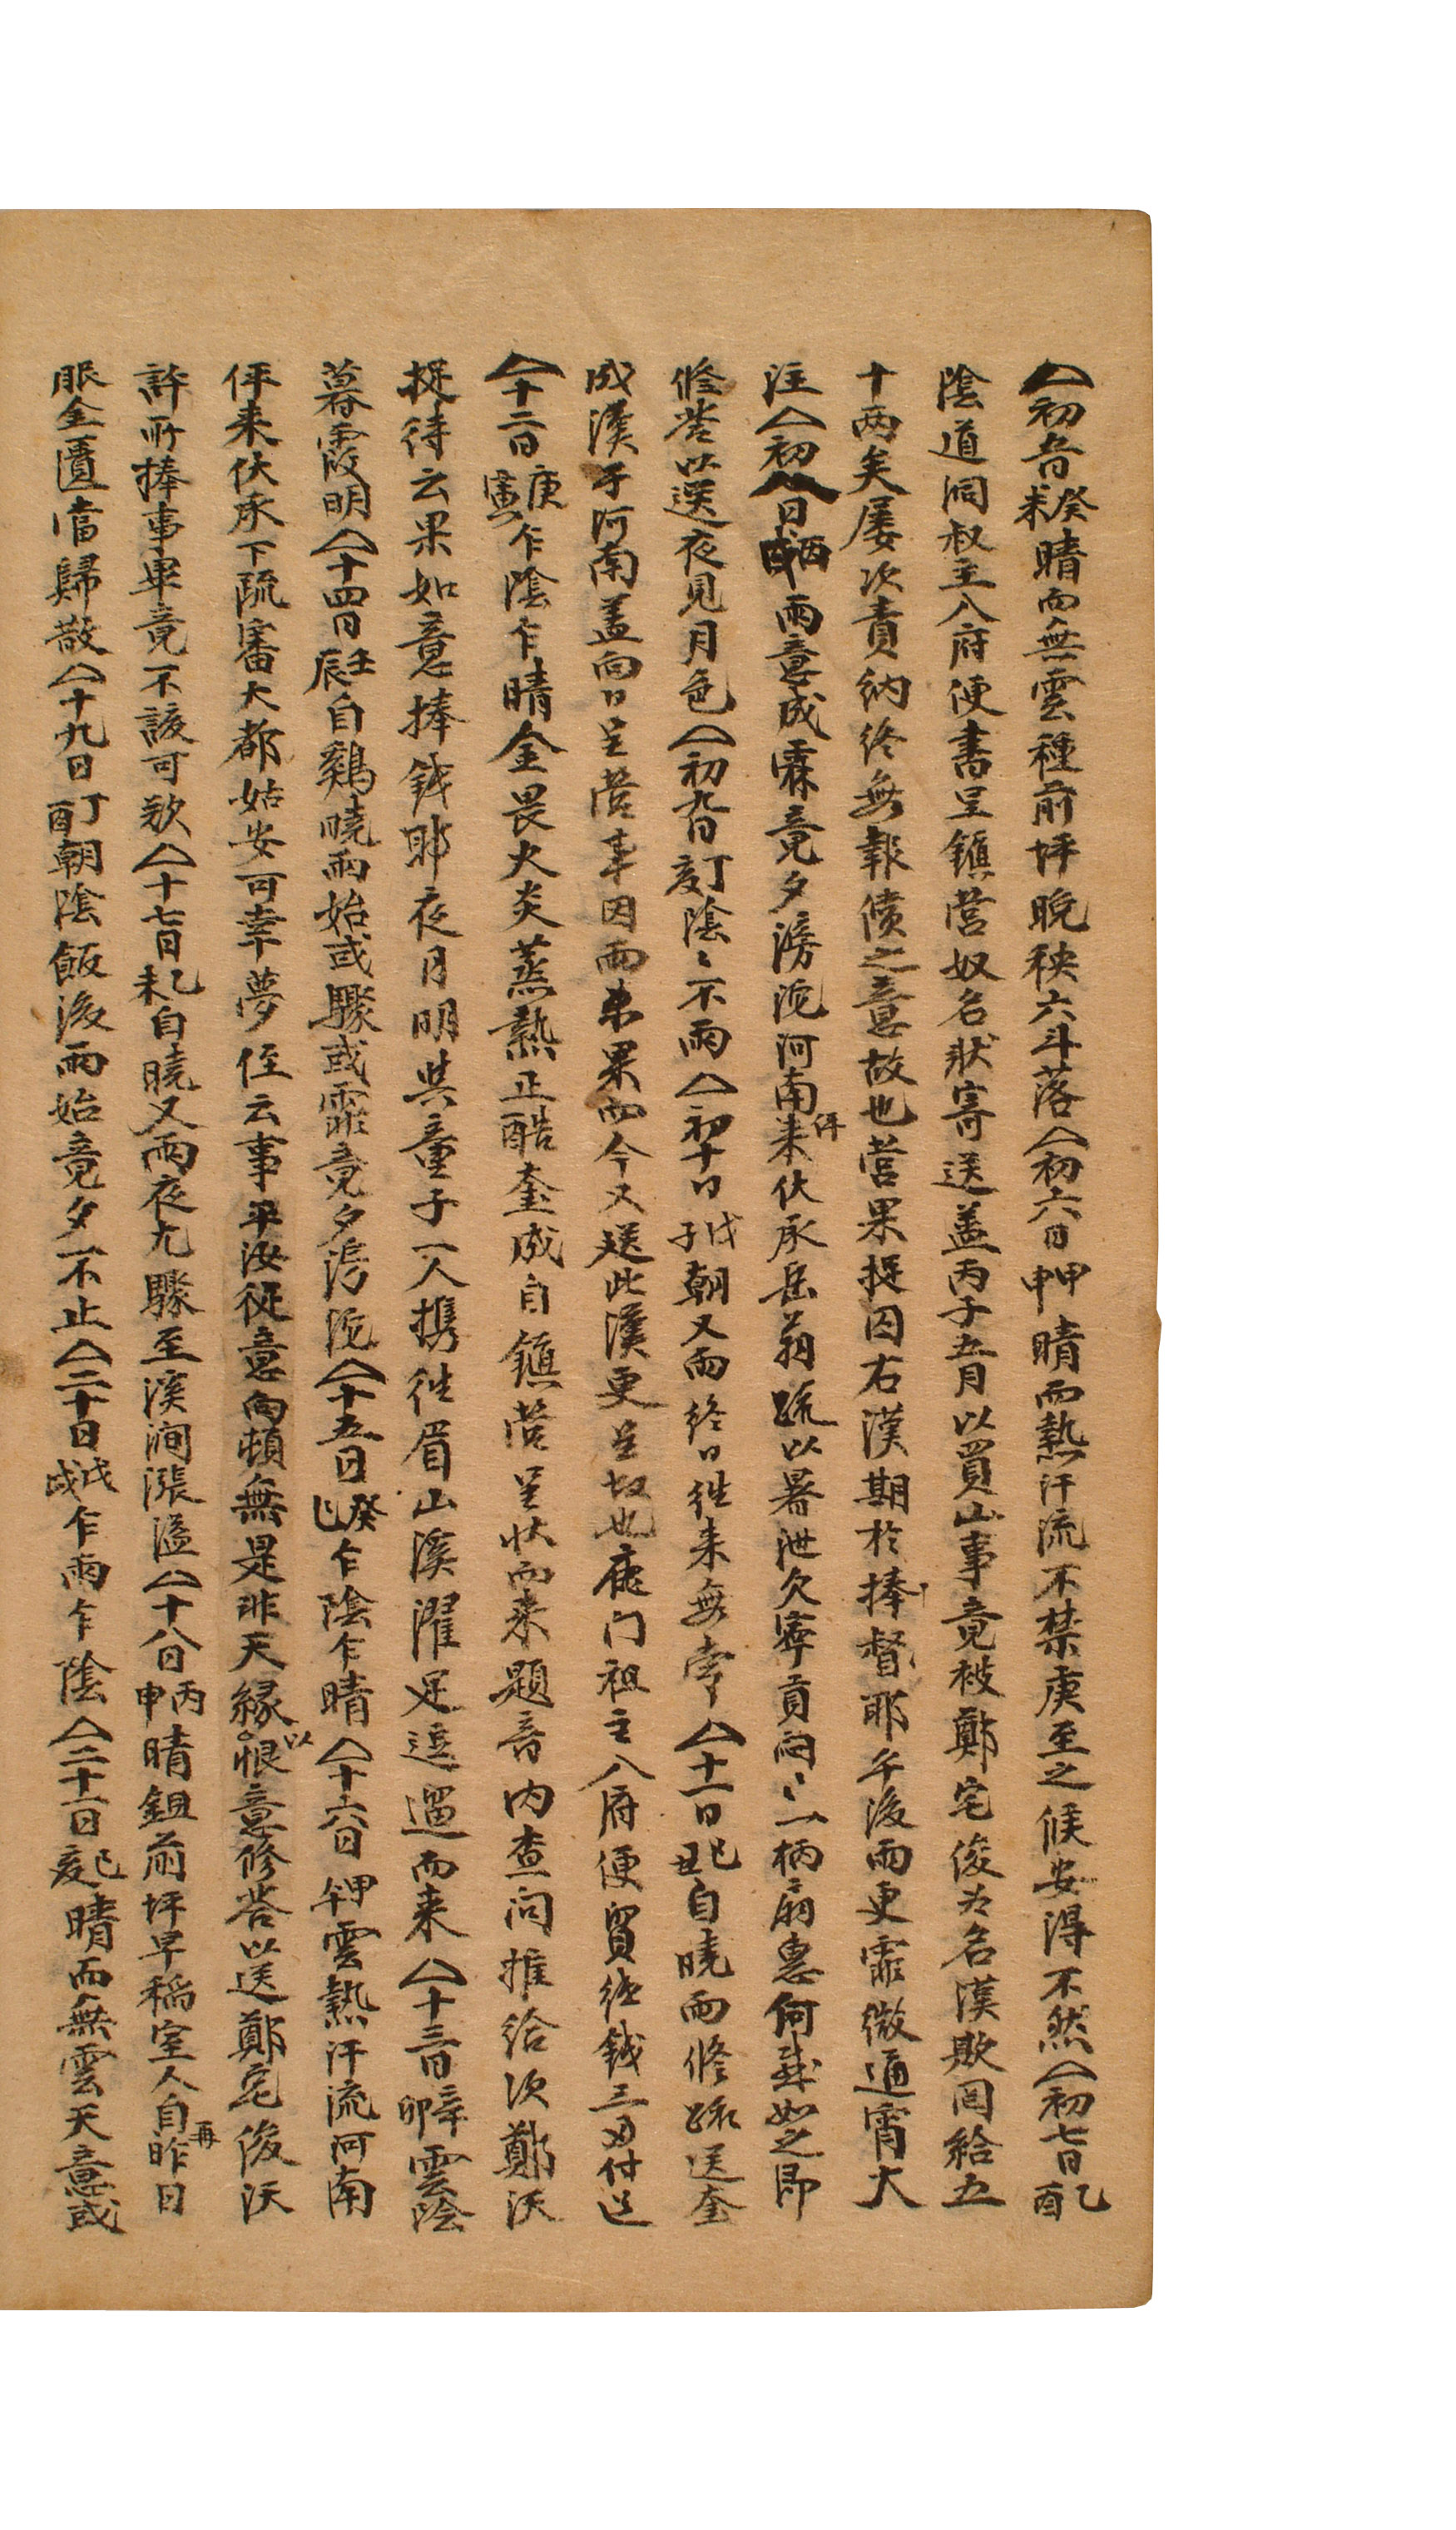 初五日癸未晴而無雲種前坪晩秧六斗落初六日甲申晴而熱汗流不禁庚至之候安得不然初七日乙酉
陰道洞叔主入府便書呈鎭營奴名狀寄送盖丙子五月以買山事竟被鄭宅俊爲名漢欺罔給五
十兩矣屢次責納終無報債之意故也營果捉囚右漢期於捧督耶午後雨更霏微通宵大
注初八日丙戌雨意成霖竟夕滂沱河南伻来伏承岳翁疏以暑泄欠寧貢悶〻一柄扇惠何幸如之即
修答以送夜見月色初九日丁亥陰〻不雨初十日戊子朝又雨終日徃来無常十一日己丑自曉雨修疏送奎
成漢于河南盖向日呈營事因雨未果而今又送此漢更呈故也鹿门祖主入府便貿紙錢三刄付送
十二日庚寅乍陰乍晴金畏火炎蒸熱正酷奎成自鎭營呈狀而来題音内查问推給次鄭沃
捉待云果如意捧錢耶夜月明與童子一人携徃眉山溪濯足逍遥而来十三日辛卯雲陰
暮霞明十四日壬辰自鷄曉雨始或驟或霏竟夕滂沱十五日癸巳乍陰乍晴十六日甲午雲熱汗流河南
伻来伏承下疏審大都姑安可幸夢侄云事平汝従意向頓無是非天緣以恨意修答以送鄭宅俊沃
許所捧事畢竟不諧可歎十七日乙未自曉又雨夜尤驟至溪澗漲溢十八日丙申晴鉏前坪早稲室人自再昨日
眼全匱當歸散十九日丁酉朝陰飯後雨始竟夕不止二十日戊戌乍雨乍陰二十一日己亥晴而無雲天意或